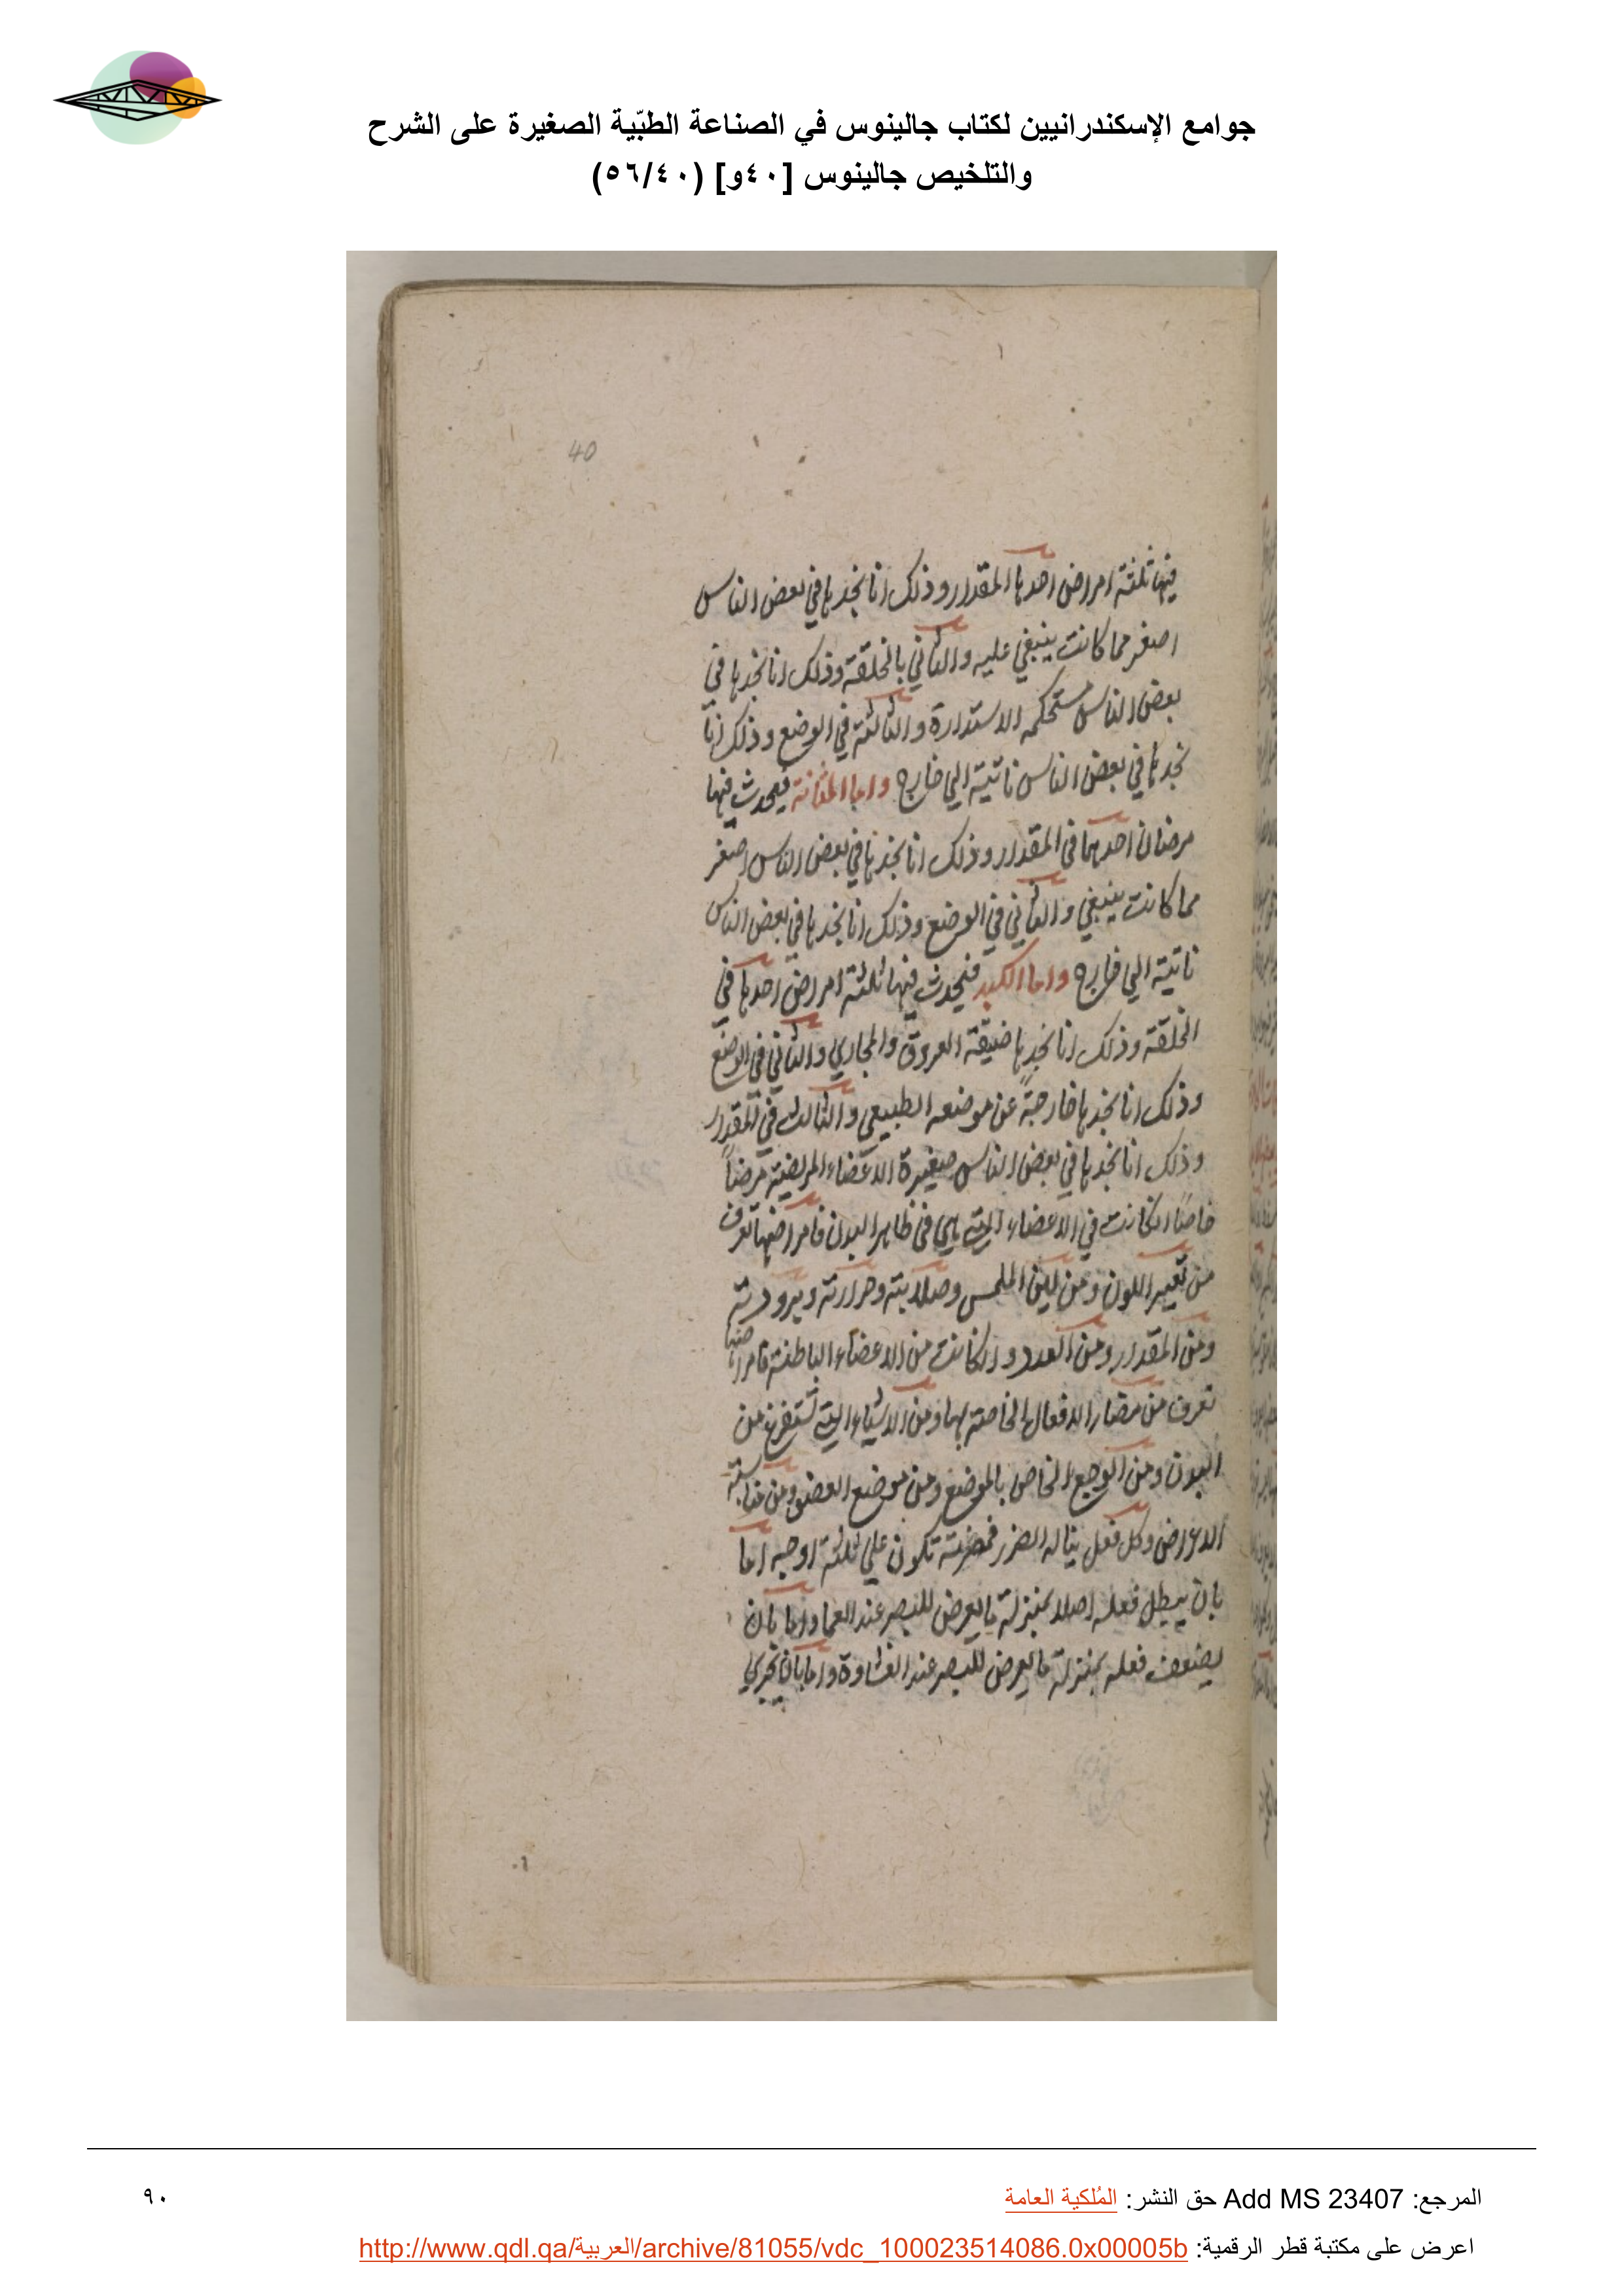 جوامع الإسكندرانيين لكتاب جالينوس في الصناعة الطبّية الصغيرة على الشرح
والتلخيص جالينوس [٤٠و] (٥٦/٤٠)
40
فيها ثلثة امراض احدها المقدار وذلك انا نجدها في بعض الناس
اصغر مما كانت ينبغي عليه والثاني بالخلقة وذلك انا نجدها في
بعض الناس مستحكمه الاستدارة والثالثة في الوضع وذلك انا
نجدها في بعض الناس ناتية الي خارج واما المثانة فيحدث فيها
مرضان احدهما في المقدار وذلك انا نجدها في بعض الناس اصغر
مما كانت ينبغي والثاني في الوضع وذلك انا نجدها في بعض الناس
ناتية الي خارج واما الكبد فيحدث فيها ثلثة امراض احدها في
الخلقة وذلك انا نجدها ضيقة العروق والمجاري والثاني في الوضع
وذلك انا نجدها خارجة عن موضعه الطبيعي والثالث في المقدار
وذلك انا نجدها في بعض الناس صغيرة الاعضاء المريضة مرضاً
خاصاً ان كانت في الاعضاء التي هي في ظاهر البدن فامراضها تعرف
من تغيير اللون ومن لين الملمس وصلابته وحرارته وبرودته
ومن المقدار ومن العدد وان كانت من الاعضاء الباطنة فامراضها
تعرف من مضار الافعال الخاصة بها ومن الاشياء التي تستفرغ من
البدن ومن الوجع الخاص بالموضع ومن موضع العضو ومن مناسبة
الاعراض وكل فعل يناله الضرر فمضرته تكون علي ثلثة اوجه اما
بان يبطل فعله اصلا بمنزلة ما يعرض للبصر عند العما واما بان
يضعف فعله بمنزلة ما يعرض للبصر عند الغشاوة واما بان يجري
المرجع: Add MS 23407 حق النشر: المُلكية العامة
٩٠
اعرض على مكتبة قطر الرقمية: http://www.qdl.qa/العربية/archive/81055/vdc_100023514086.0x00005b